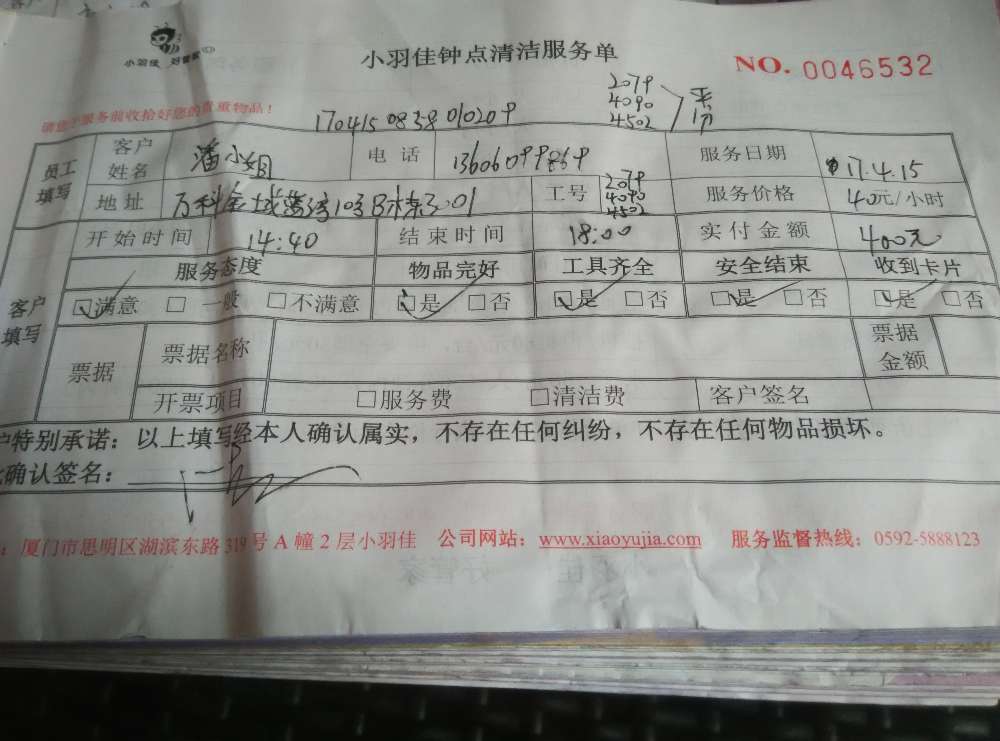 小羽佳 好管家
小羽佳钟点清洁服务单
NO. 0046532
服务前收拾好您的贵重物品！
2079
4090
4502
平分
1704150838010209
员工填写
客户姓名 潘小姐 电话 服务日期 17.4.15
地址 万科金域 10号B栋 工号 2079 4090 4502 服务价格 40元/小时
客户填写
开始时间 14:40 结束时间 18:00 实付金额 400元
服务态度 物品完好 工具齐全 安全结束 收到卡片
☑满意 □一般 □不满意 ☑是 □否 ☑是 □否 ☑是 □否 ☑是 □否
票据 票据名称 票据金额
开票项目 □服务费 □清洁费 客户签名
特别承诺：以上填写经本人确认属实，不存在任何纠纷，不存在任何物品损坏。
确认签名：
：厦门市思明区湖滨东路319号A幢2层小羽佳 公司网站：www.xiaoyujia.com 服务监督热线：0592-5888123